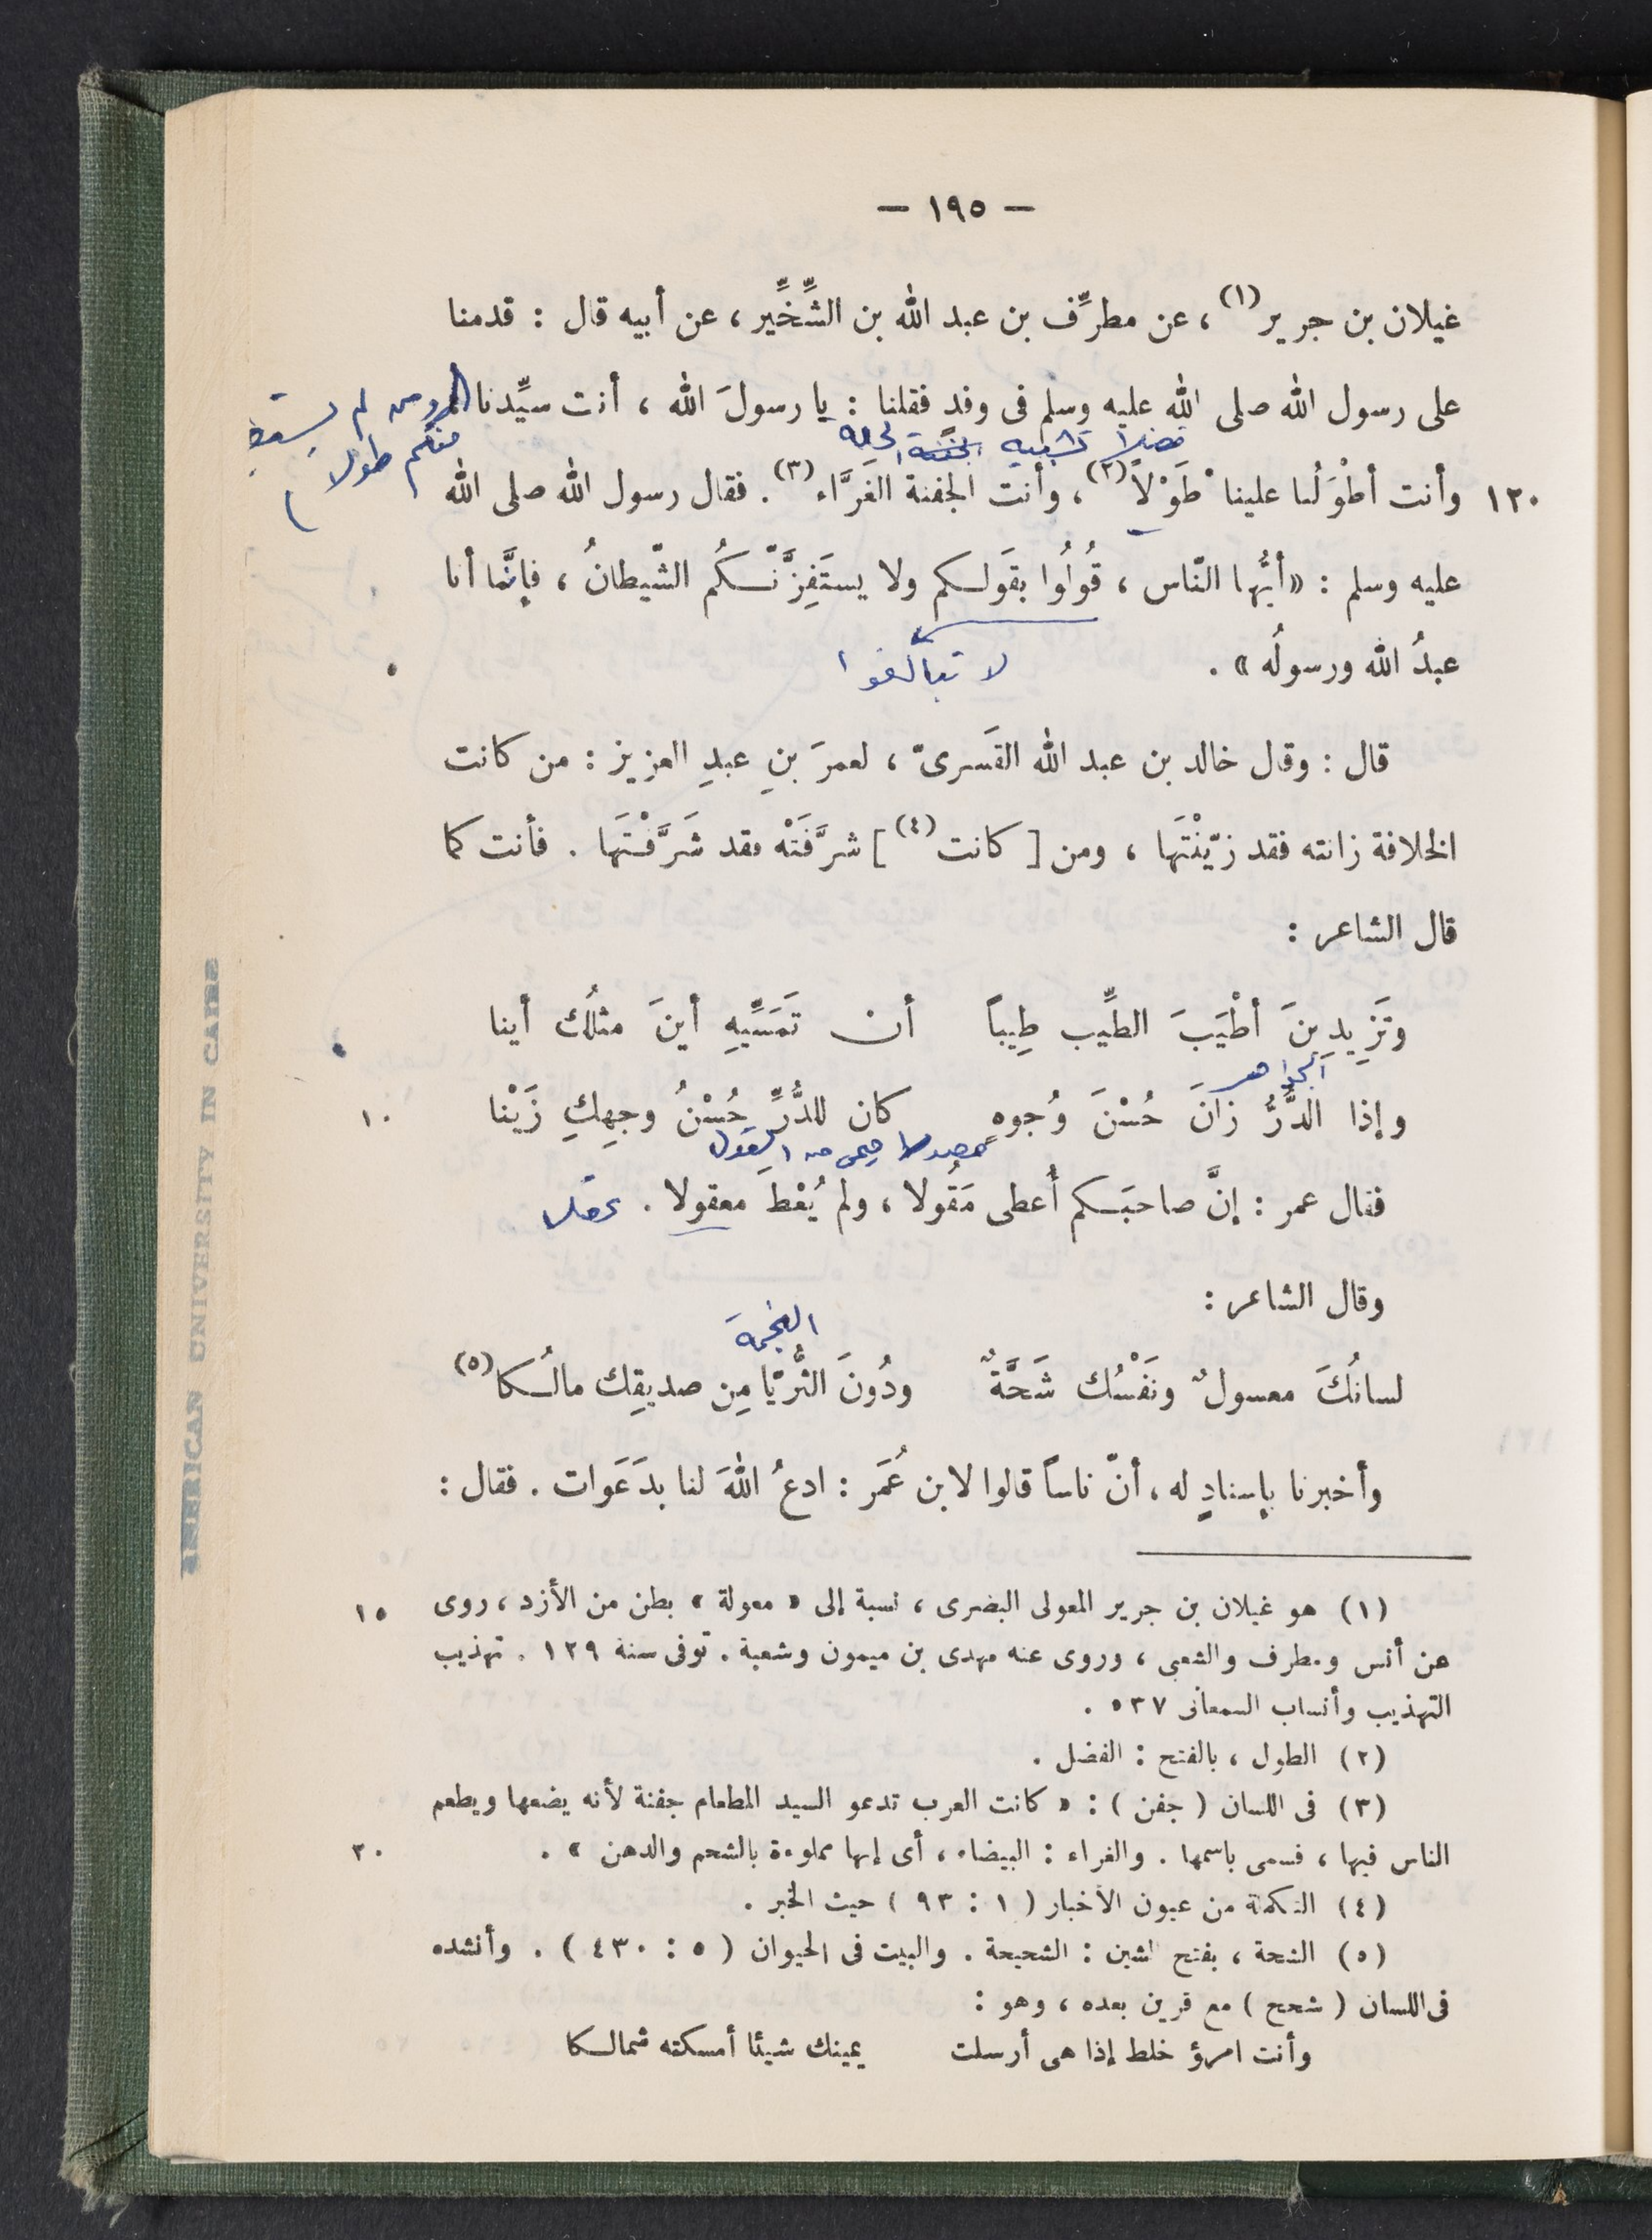 — ١٩٥ —
غيلان بن جرير(١)، عن مطرِّف بن عبد الله بن الشِّخِّير، عن أبيه قال : قدمنا
على رسول الله صلى الله عليه وسلم فى وفدٍ فقلنا : يا رسولَ الله ، أنت سيِّدنا
ومن لم يستطع
منكم طولا
فضلا تشبيه
١٢٠ وأنت أطْوَلُنا علينا طَوْلاً(٢)، وأنت الجفنة الغَرَّاء(٣). فقال رسول الله صلى الله
عليه وسلم : «أيُّها النّاس ، قُولُوا بقَولكم ولا يستَفِزَّنّكُم الشّيطانُ ، فإنَّما أنا
عبدُ الله ورسولُه » .
لا تبالغوا
قال : وقال خالد بن عبد الله القَسرىّ ، لعمرَ بنِ عبدِ العزيز : من كانت
الخلافة زانته فقد زيّنْتَها ، ومن [ كانت(٤)] شرَّفَتْه فقد شَرَّفْتَها . فأنت كما
قال الشاعر :
وتَزِيدِينَ أطْيَبَ الطِّيب طِيباً أن تَمَسِّيهِ أينَ مثلُك أينا
الجواهر
وإذا الدُّرُّ زانَ حُسْنَ وُجوهٍ كان للدُّرِّ حُسْنُ وجهِكِ زَيْنا ١٠
مصدر ميمى من القول
فقال عمر : إنَّ صاحبَكم أُعطى مَقُولا ، ولم يُعْطَ معقولا . عقلا
وقال الشاعر :
النجمة
لسانُكَ معسولٌ ونَفْسُك شَحَّةٌ ودُونَ الثُّريّا مِن صديقِك مالُكا(٥)
وأخبرنا بإسنادٍ له ، أنّ ناساً قالوا لابن عُمَر : ادعُ اللهَ لنا بدَعَوات . فقال :
(١) هو غيلان بن جرير المعولى البصرى ، نسبة إلى « معولة » بطن من الأزد ، روى ١٥
عن أنس ومطرف والشعبى ، وروى عنه مهدى بن ميمون وشعبة . توفى سنة ١٢٩ . تهذيب
التهذيب وأنساب السمعانى ٥٣٧ .
(٢) الطول ، بالفتح : الفضل .
(٣) فى اللسان ( جفن ) : « كانت العرب تدعو السيد المطعام جفنة لأنه يضعها ويطعم
الناس فيها ، فسمى باسمها . والغراء : البيضاء ، أى إنها مملوءة بالشحم والدهن » . ٢٠
(٤) التكملة من عيون الأخبار ( ١ : ٩٣ ) حيث الخبر .
(٥) الشحة ، بفتح الشين : الشحيحة . والبيت فى الحيوان ( ٥ : ٤٣٠ ) . وأنشده
فى اللسان ( شحح ) مع قرين بعده ، وهو :
وأنت امرؤ خلط إذا هى أرسلت يمينك شيئا أمسكته شمالكا
AMERICAN UNIVERSITY IN CAIRO